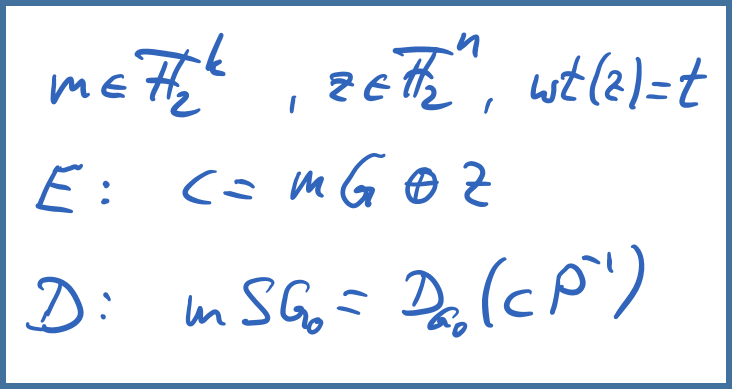 m ∈ 𝔽₂ᵏ , z ∈ 𝔽₂ⁿ, wt(z)=t
E: c = mG ⊕ z
D: mSG₀ = D_G₀(cP⁻¹)